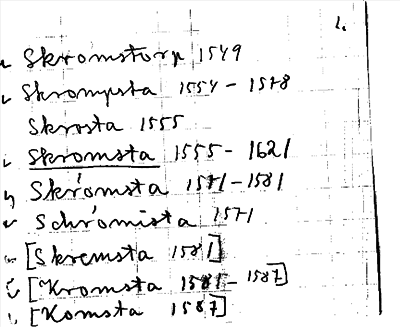 1.
Skromstorp 1549
Skrompsta 1554 - 1578
Skrosta 1555
Skromsta 1555 - 1621
Skrómsta 1571 - 1581
Schrómista 1571
[Skremsta 1581]
[Kromsta 1581 - 1587]
[Komsta 1587]